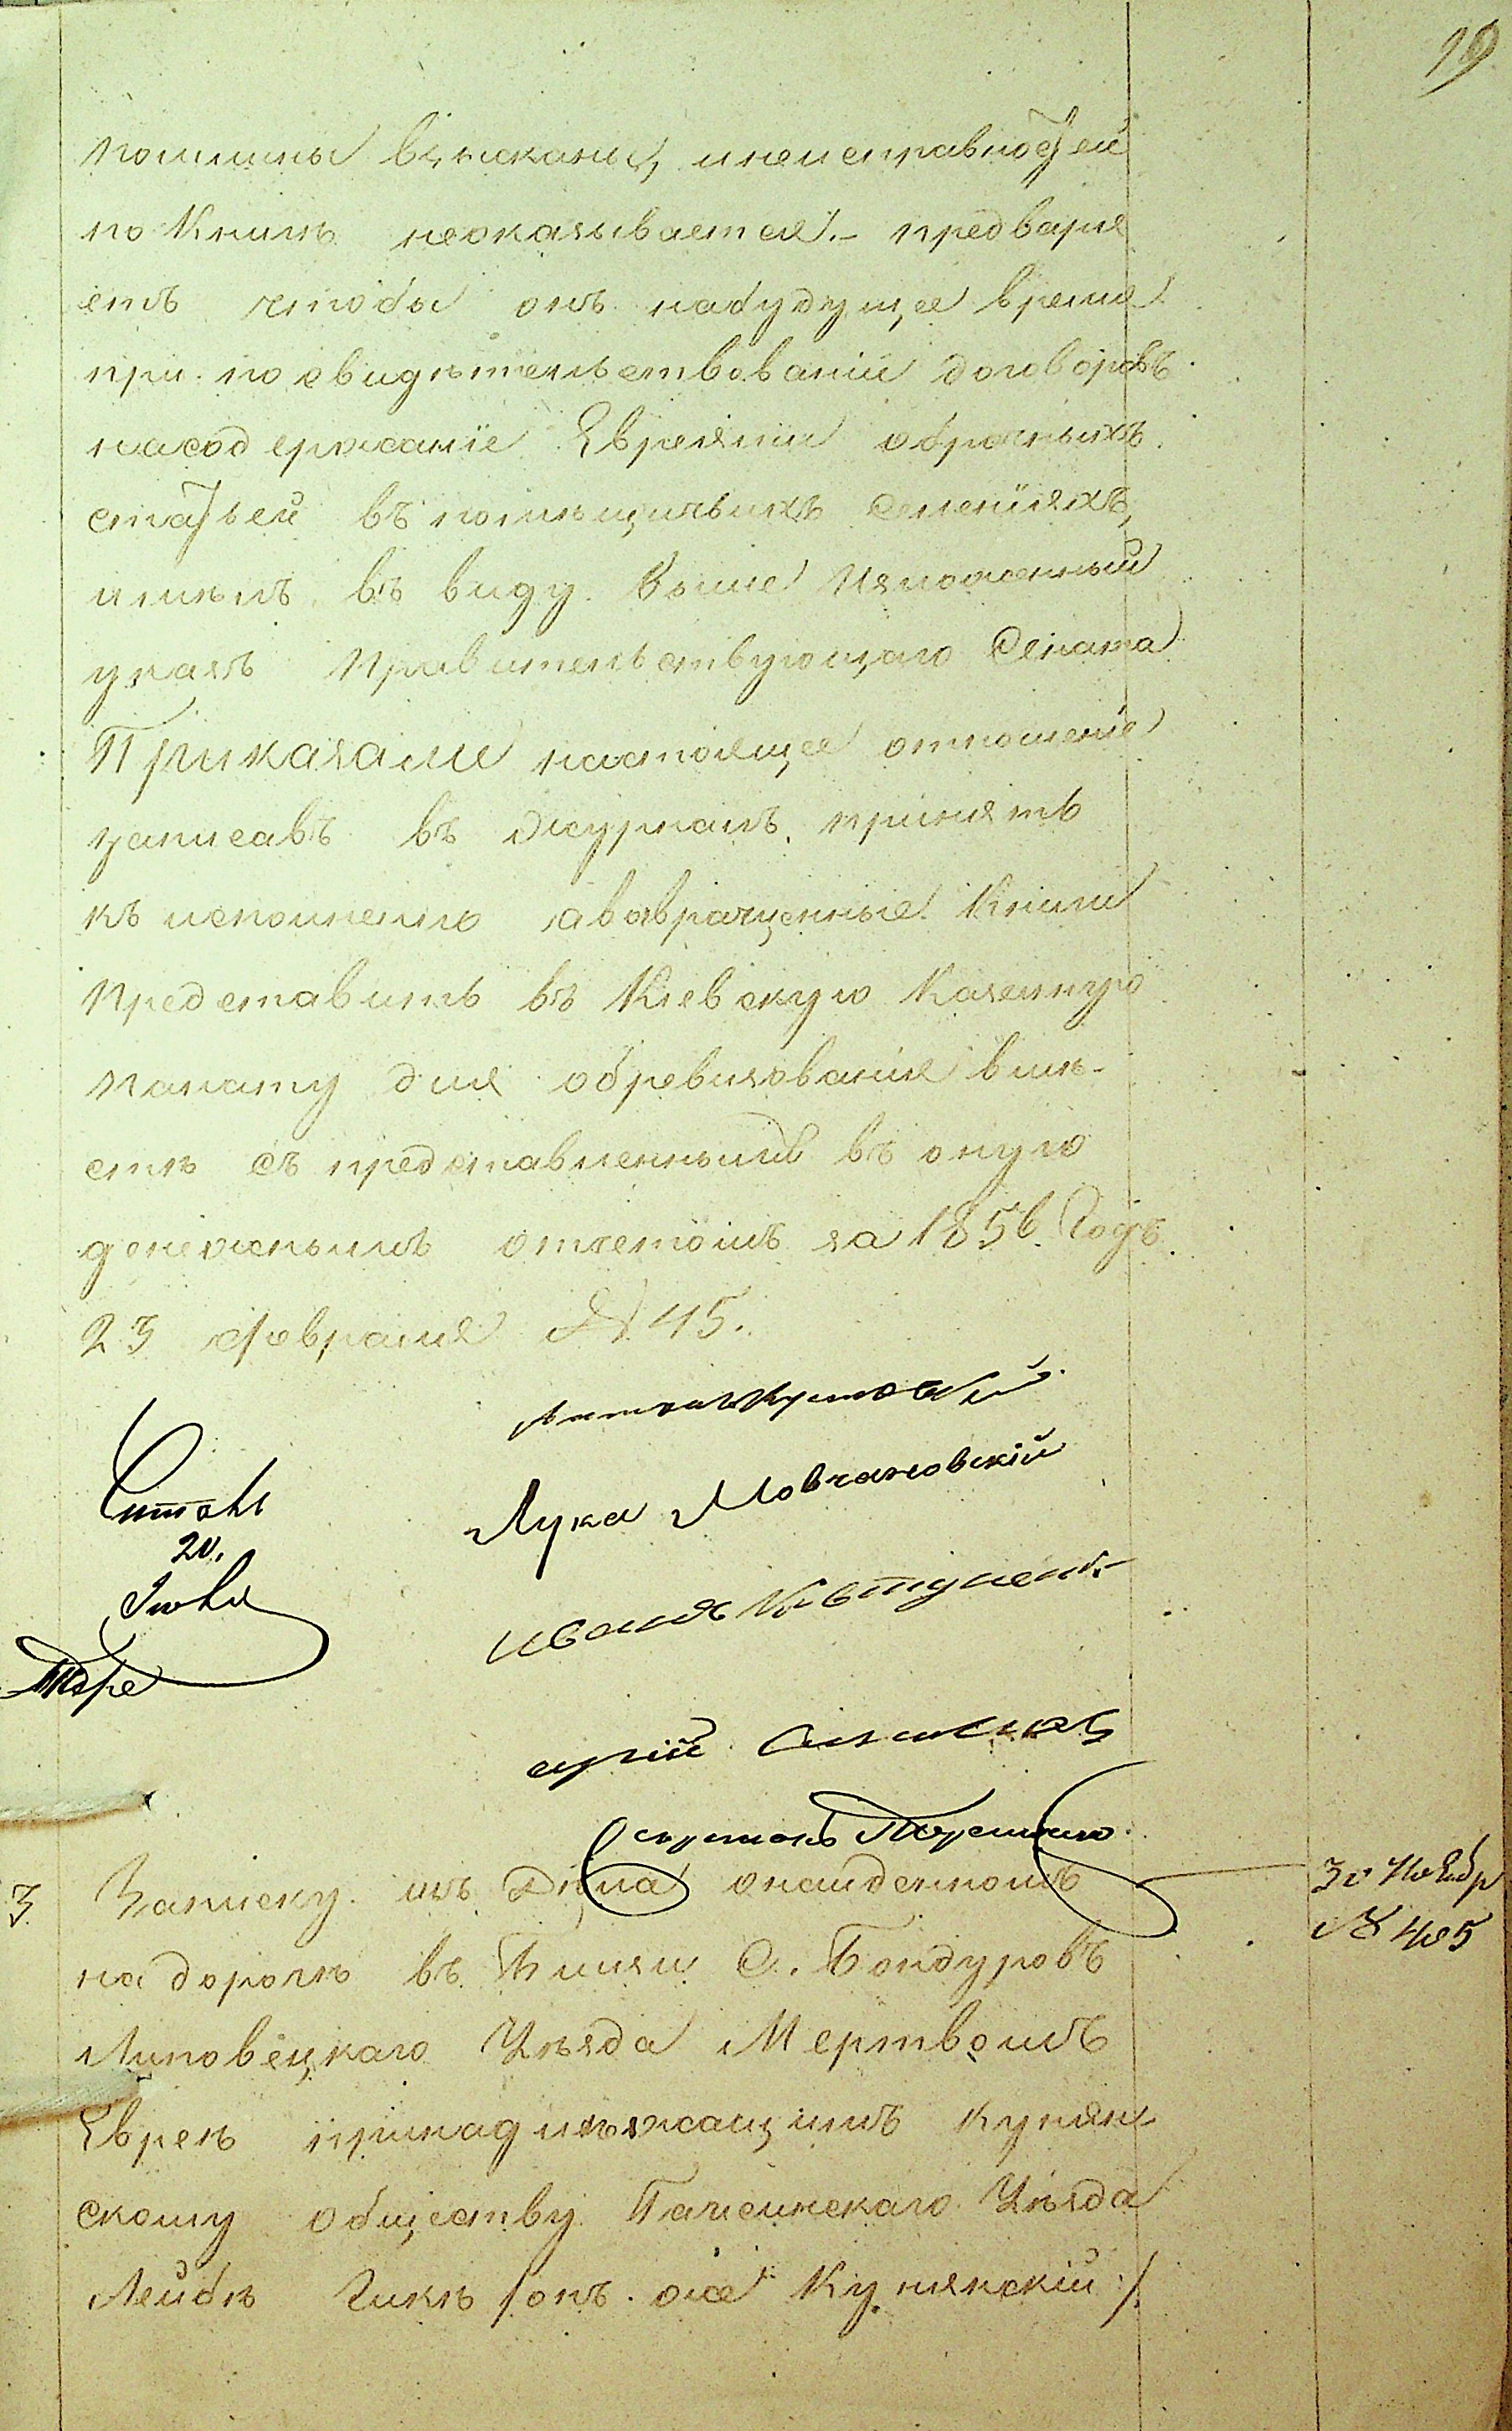 19
пошлины взысканы, инеисправностей
по Книгѣ неоказывается. – предваря
етъ чтобы онъ набудущее время
при посвидѣтельствованіи договоровъ
насодержаніе Евреями оброчныхъ
статьей въ помѣщичьихъ селеніяхъ,
имѣлъ въ виду выше Изложенный
указъ Правительствующаго Сената
Приказали настоящее отношеніе
записавъ въ журналъ, принять
къ исполненію авозвращенные Книги
представить въ Кіевскую Казенную
палату для обревизованія вмѣ-
стѣ съ представленнымъ въ оную
денежнымъ отчетомъ за 1856 Годъ
23 Февраля № 45.
Лука Мовчановскій
Читалъ
20.
Иванъ
3 Записку изъ Дѣла онайденномъ
30 Ноябр
№ 405
на дорогѣ въ близи С. Бондуровъ
Липовецкаго Уѣзда Мертвомъ
Евреѣ принадлѣжащимъ Кунян
скому обществу Гайсинскаго Уѣзда
Лейбѣ Чикѣ /онъ же Кунянскій:/